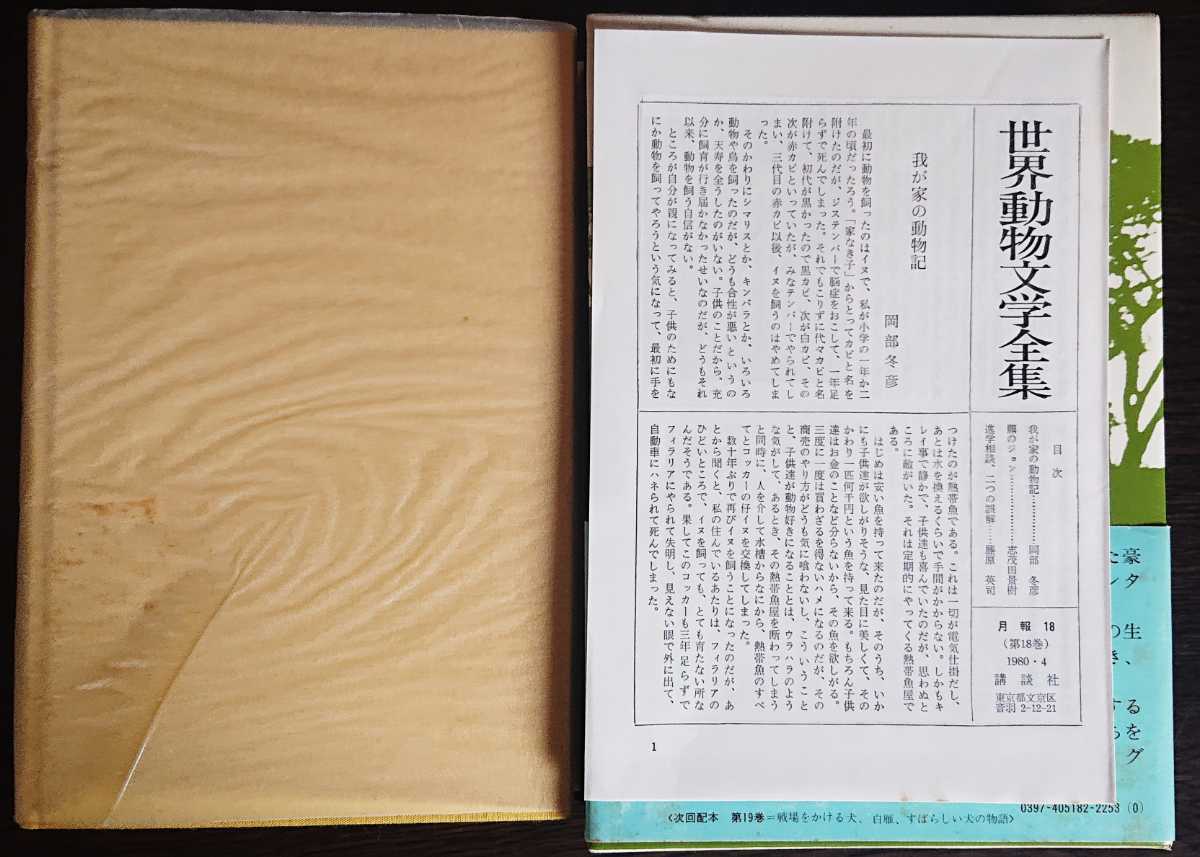 世界動物文学全集
目次
我が家の動物記…………岡部 冬彦
鵰のジョン…………志茂田景樹
進学相談、二つの誤解……藤原 英司
月報 18
(第18巻)
1980・4
講談社
東京都文京区
音羽 2-12-21
我が家の動物記
岡部冬彦
最初に動物を飼ったのはイヌで、私が小学の一年か二
年の頃だったろう。「家なき子」からとってカピと名を
附けたのだが、ジステンパーで脳症をおこして、一年足
らずで死んでしまった。それでもこりずに代々カピと名
附けて、初代が黒かったので黒カピ、次が白カピ、その
次が赤カピといっていたが、みなテンパーでやられてし
まい、三代目の赤カピ以後、イヌを飼うのはやめてしま
った。
そのかわりにシマリスとか、キンバラとか、いろいろ
動物や鳥を飼ったのだが、どうも合性が悪いというの
か、天寿を全うしたのがいない。子供のことだから、充
分に飼育が行き届かなかったせいなのだが、どうもそれ
以来、動物を飼う自信がない。
ところが自分が親になってみると、子供のためにもな
にか動物を飼ってやろうという気になって、最初に手を
つけたのが熱帯魚である。これは一切が電気仕掛だし、
あとは水を換えるくらいで手間がかからない。しかもキ
レイ事で静かで、子供達も喜んでいたのだが、思わぬと
ころに敵がいた。それは定期的にやってくる熱帯魚屋で
ある。
はじめは安い魚を持って来たのだが、そのうち、いか
にも子供達が欲しがりそうな、見た目に美しくて、その
かわり一匹何千円という魚を持って来る。もちろん子供
達はお金のことなど分らないから、その魚を欲しがる。
三度に一度は買わざるを得ないハメになるのだが、その
商売のやり方がどうも気に喰わないし、こういうこと
と、子供達が動物好きになることとは、ウラハラのよう
な気がして、あるとき、その熱帯魚屋を断わってしまう
と同時に、人を介して水槽からなにから、熱帯魚のすべ
てとコッカーの仔イヌを交換してしまった。
数十年ぶりで再びイヌを飼うことになったのだが、あ
とから聞くと、私の住んでいるあたりは、フィラリアの
ひどいところで、イヌを飼っても、とても育たない所な
んだそうである。果してこのコッカーも三年足らずで
フィラリアにやられて失明し、見えない眼で外に出て、
自動車にハネられて死んでしまった。
1
豪
タ
た
ン
生
の
、
る
を
グ
0397-405182-2253 (0)
〈次回配本 第19巻＝戦場をかける犬、白雁、すばらしい犬の物語〉